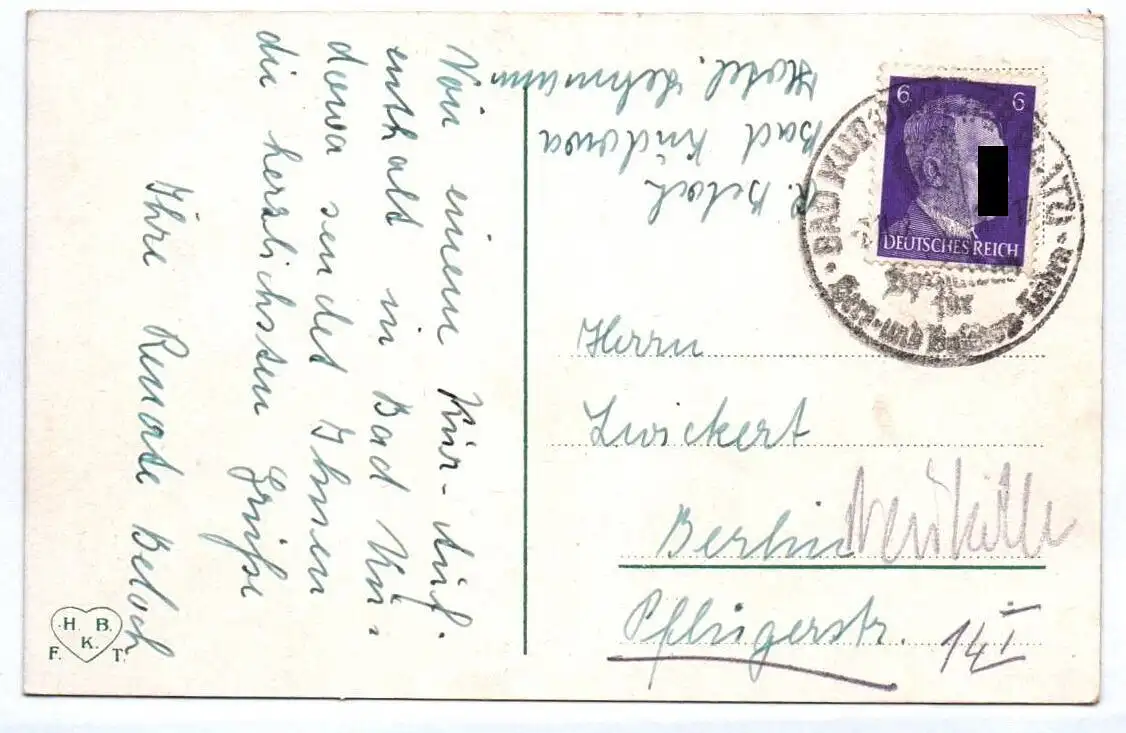 Von einem Kur-Auf-
enthalt in Bad Ku-
dowa sendet Ihnen
die herzlichsten Grüße
Ihre Renate Beloch
H. B.
K.
F. T.
R. Beloch
Bad Kudowa
Hotel. Lehmann
6 6
DEUTSCHES REICH
BAD KUDOWA
für
Herz- und
Herrn
Zwickert
Berlin Neukölln
Pflügerstr. 14 I